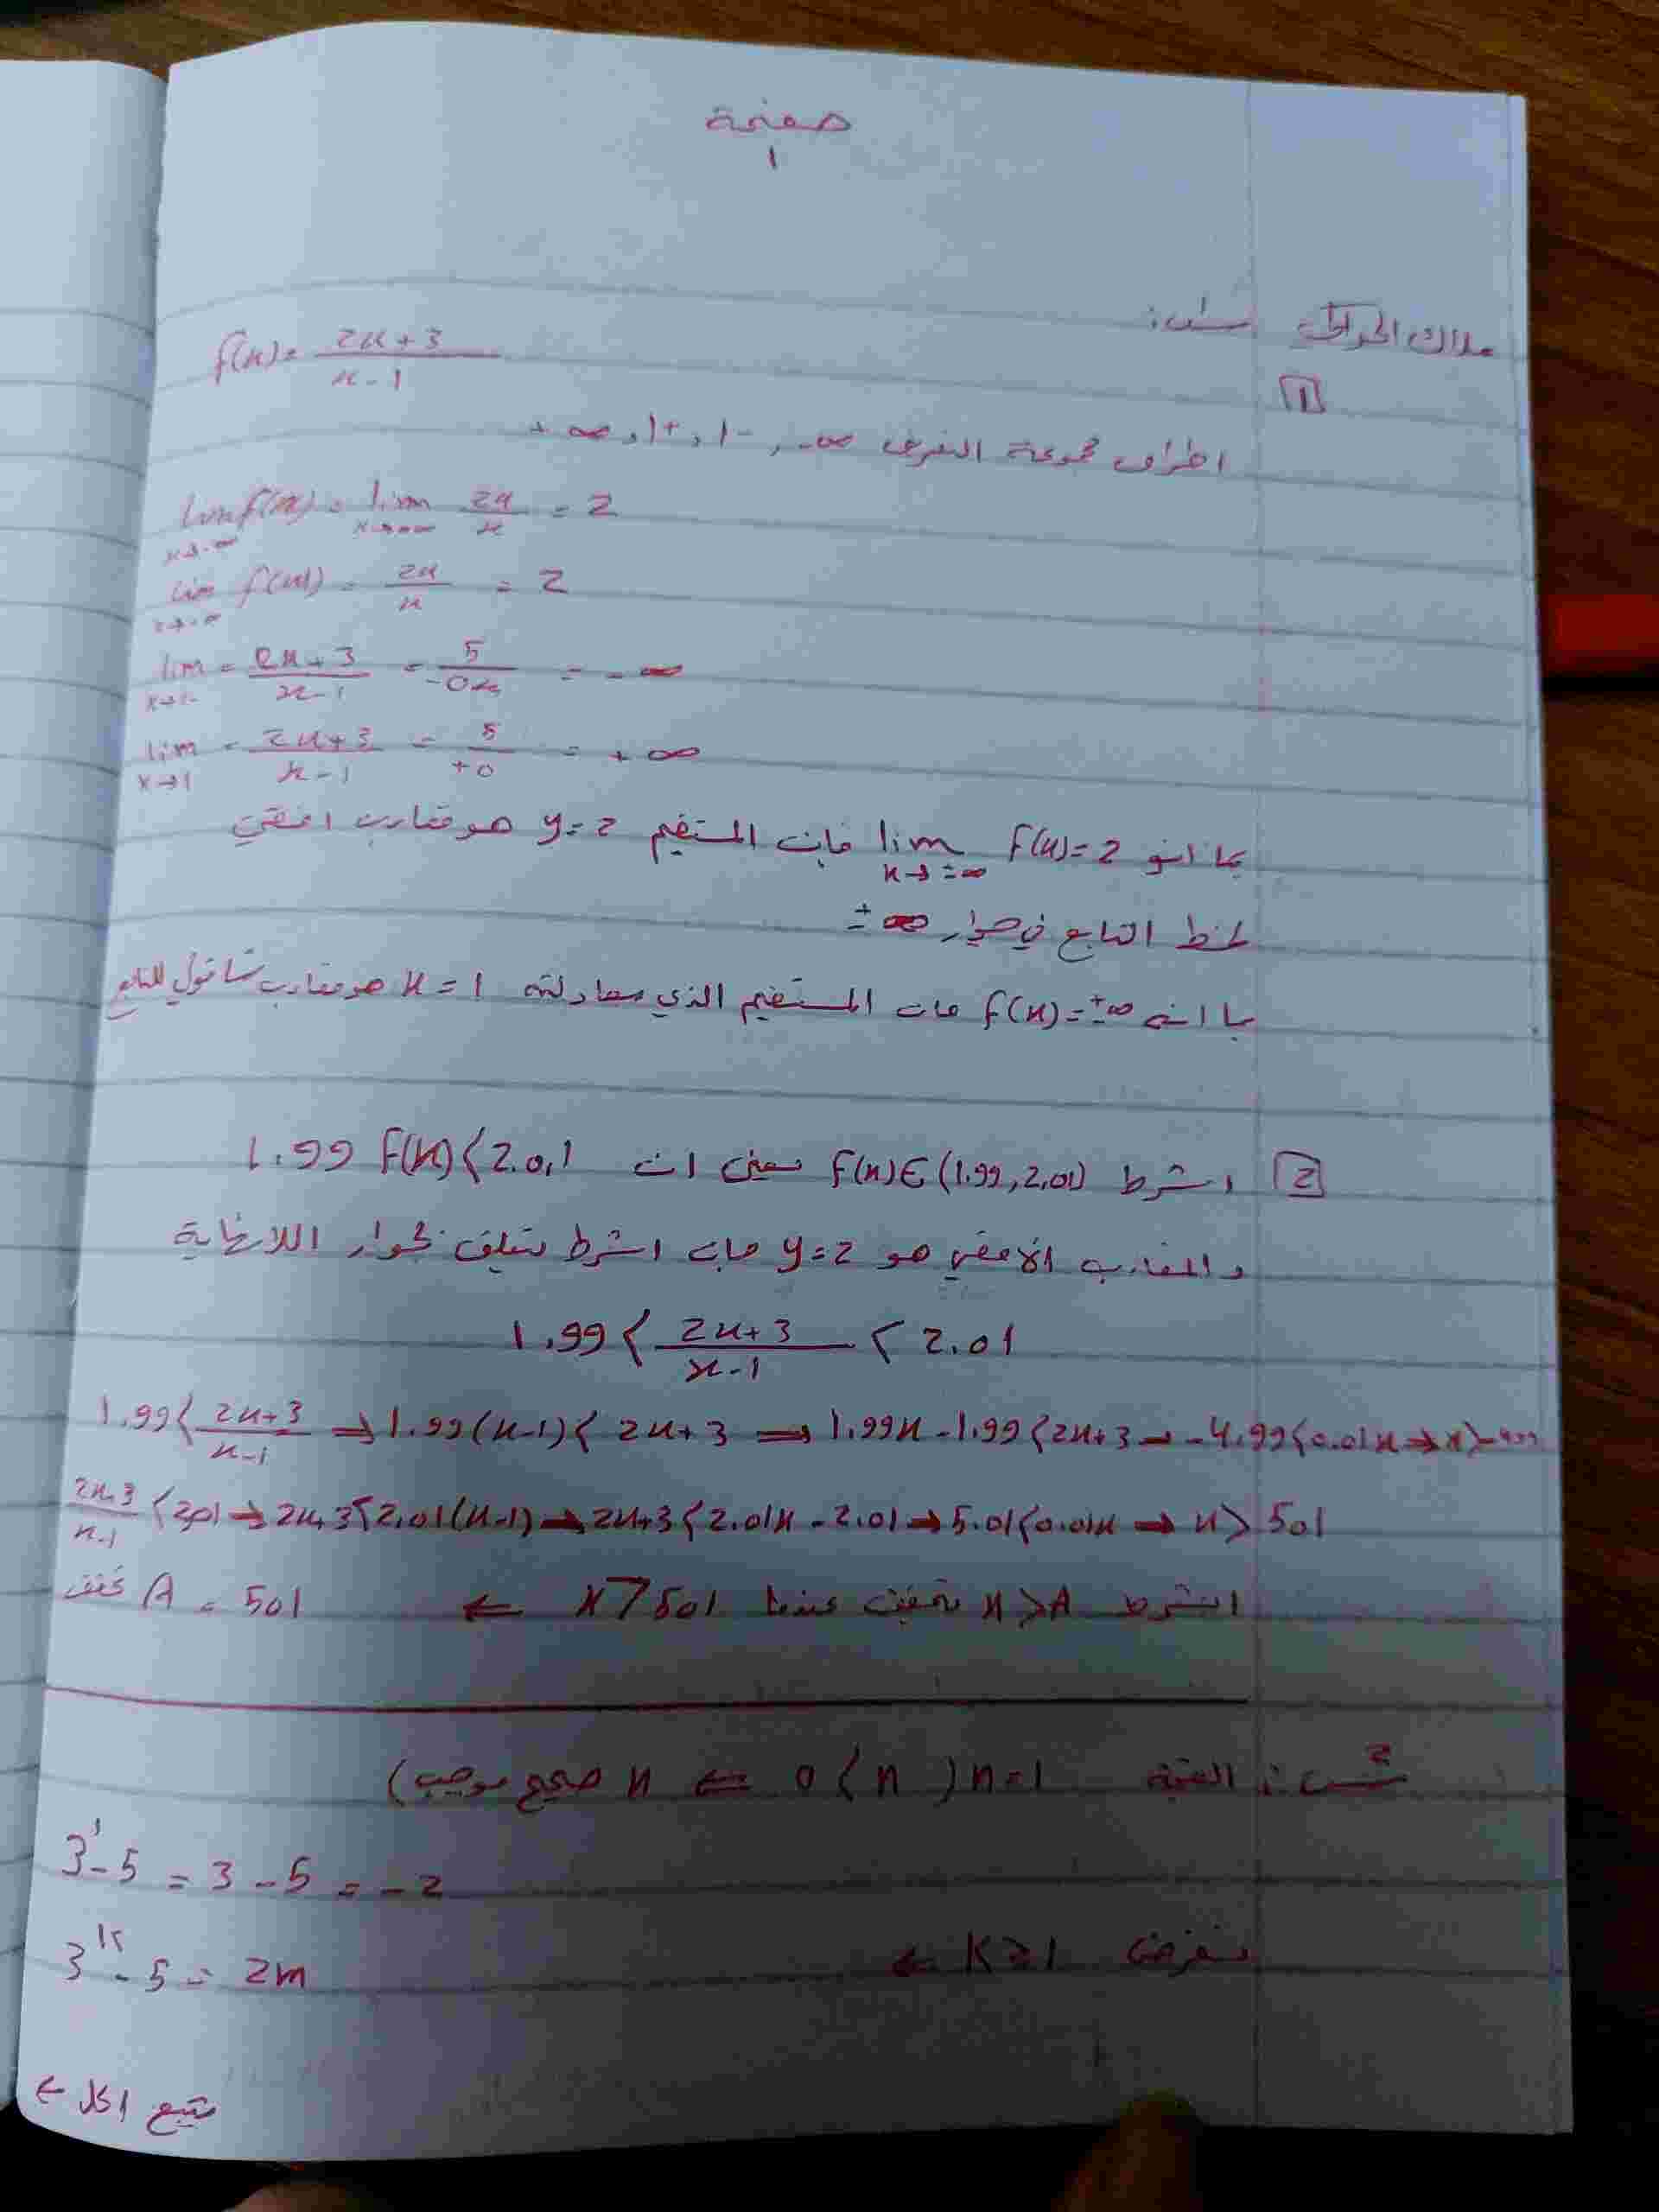 صفحة
1
ملاك س1:
1
f(x) = 2x+3 / x-1
اطراف مجموعة التعريف -∞, 1-, 1+, +∞
lim f(x) = lim 2x/x = 2
x→-∞ x→-∞
lim f(x) = 2x/x = 2
x→-∞
lim = 2x+3 / x-1 = 5 / -0 = -∞
x→1-
lim = 2x+3 / x-1 = 5 / +0 = +∞
x→1
بما انو lim f(x)=2 فان المستقيم y=2 هو مقارب افقي
x→±∞
لخط التابع في جوار ±∞
بما انه f(x)=±∞ فان المستقيم الذي معادلته x=1 هو مقارب شاقولي للتابع
2 اشرط f(x)∈(1.99,2.01) يعني ان 1.99 f(x)<2.01
والمقارب الافقي هو y=2 فان اشرط يتعلق بجوار اللانهاية
1.99 < 2x+3 / x-1 < 2.01
1.99 < 2x+3 / x-1 ⇒ 1.99(x-1) < 2x+3 ⇒ 1.99x-1.99 < 2x+3 → -4.99 < 0.01x ⇒ x > -499
2x+3 / x-1 < 2.01 → 2x+3 < 2.01(x-1) → 2x+3 < 2.01x-2.01 → 5.01 < 0.01x ⇒ x > 501
الشرط x>A تحقق عندما x>501 ← A = 501 تحقق
س2: n=1 (n>0 ← n صحيح موجب)
3¹-5 = 3-5 = -2
نفرض K≥1 ←
3ᴷ-5 = 2m
يتبع الحل ←